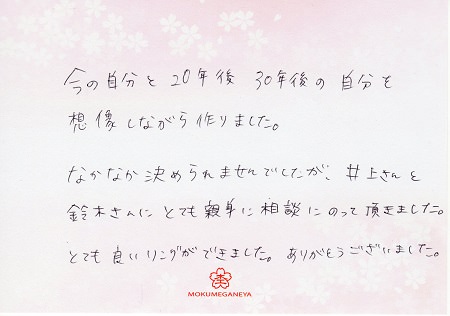 今の自分と20年後 30年後の自分を
想像しながら作りました。
なかなか決められませんでしたが、井上さんと
鈴木さんにとても親身に相談にのって頂きました。
とても良いリングができました。ありがとうございました。
MOKUMEGANEYA